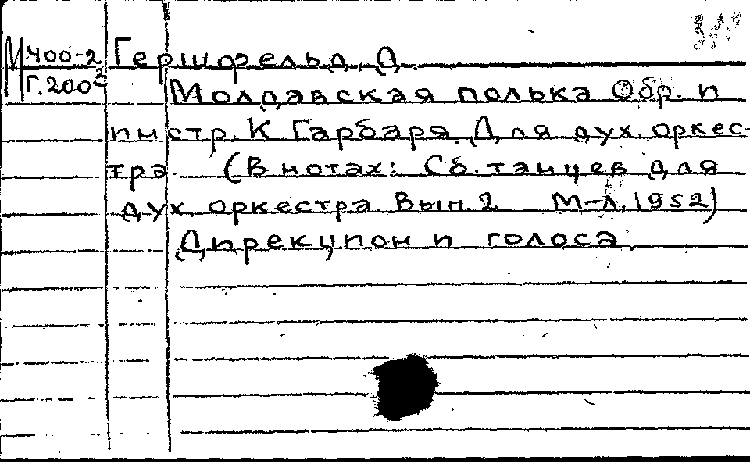 М 400-2 Гершфельд, Д.
Г. 200² Молдавская полька Обр. и
инстр. К Гарбаря. Для дух. оркес-
тра. (В нотах: Сб. танцев для
дух. оркестра Вып. 2 М-Л, 1952)
Дирекцион и голоса.